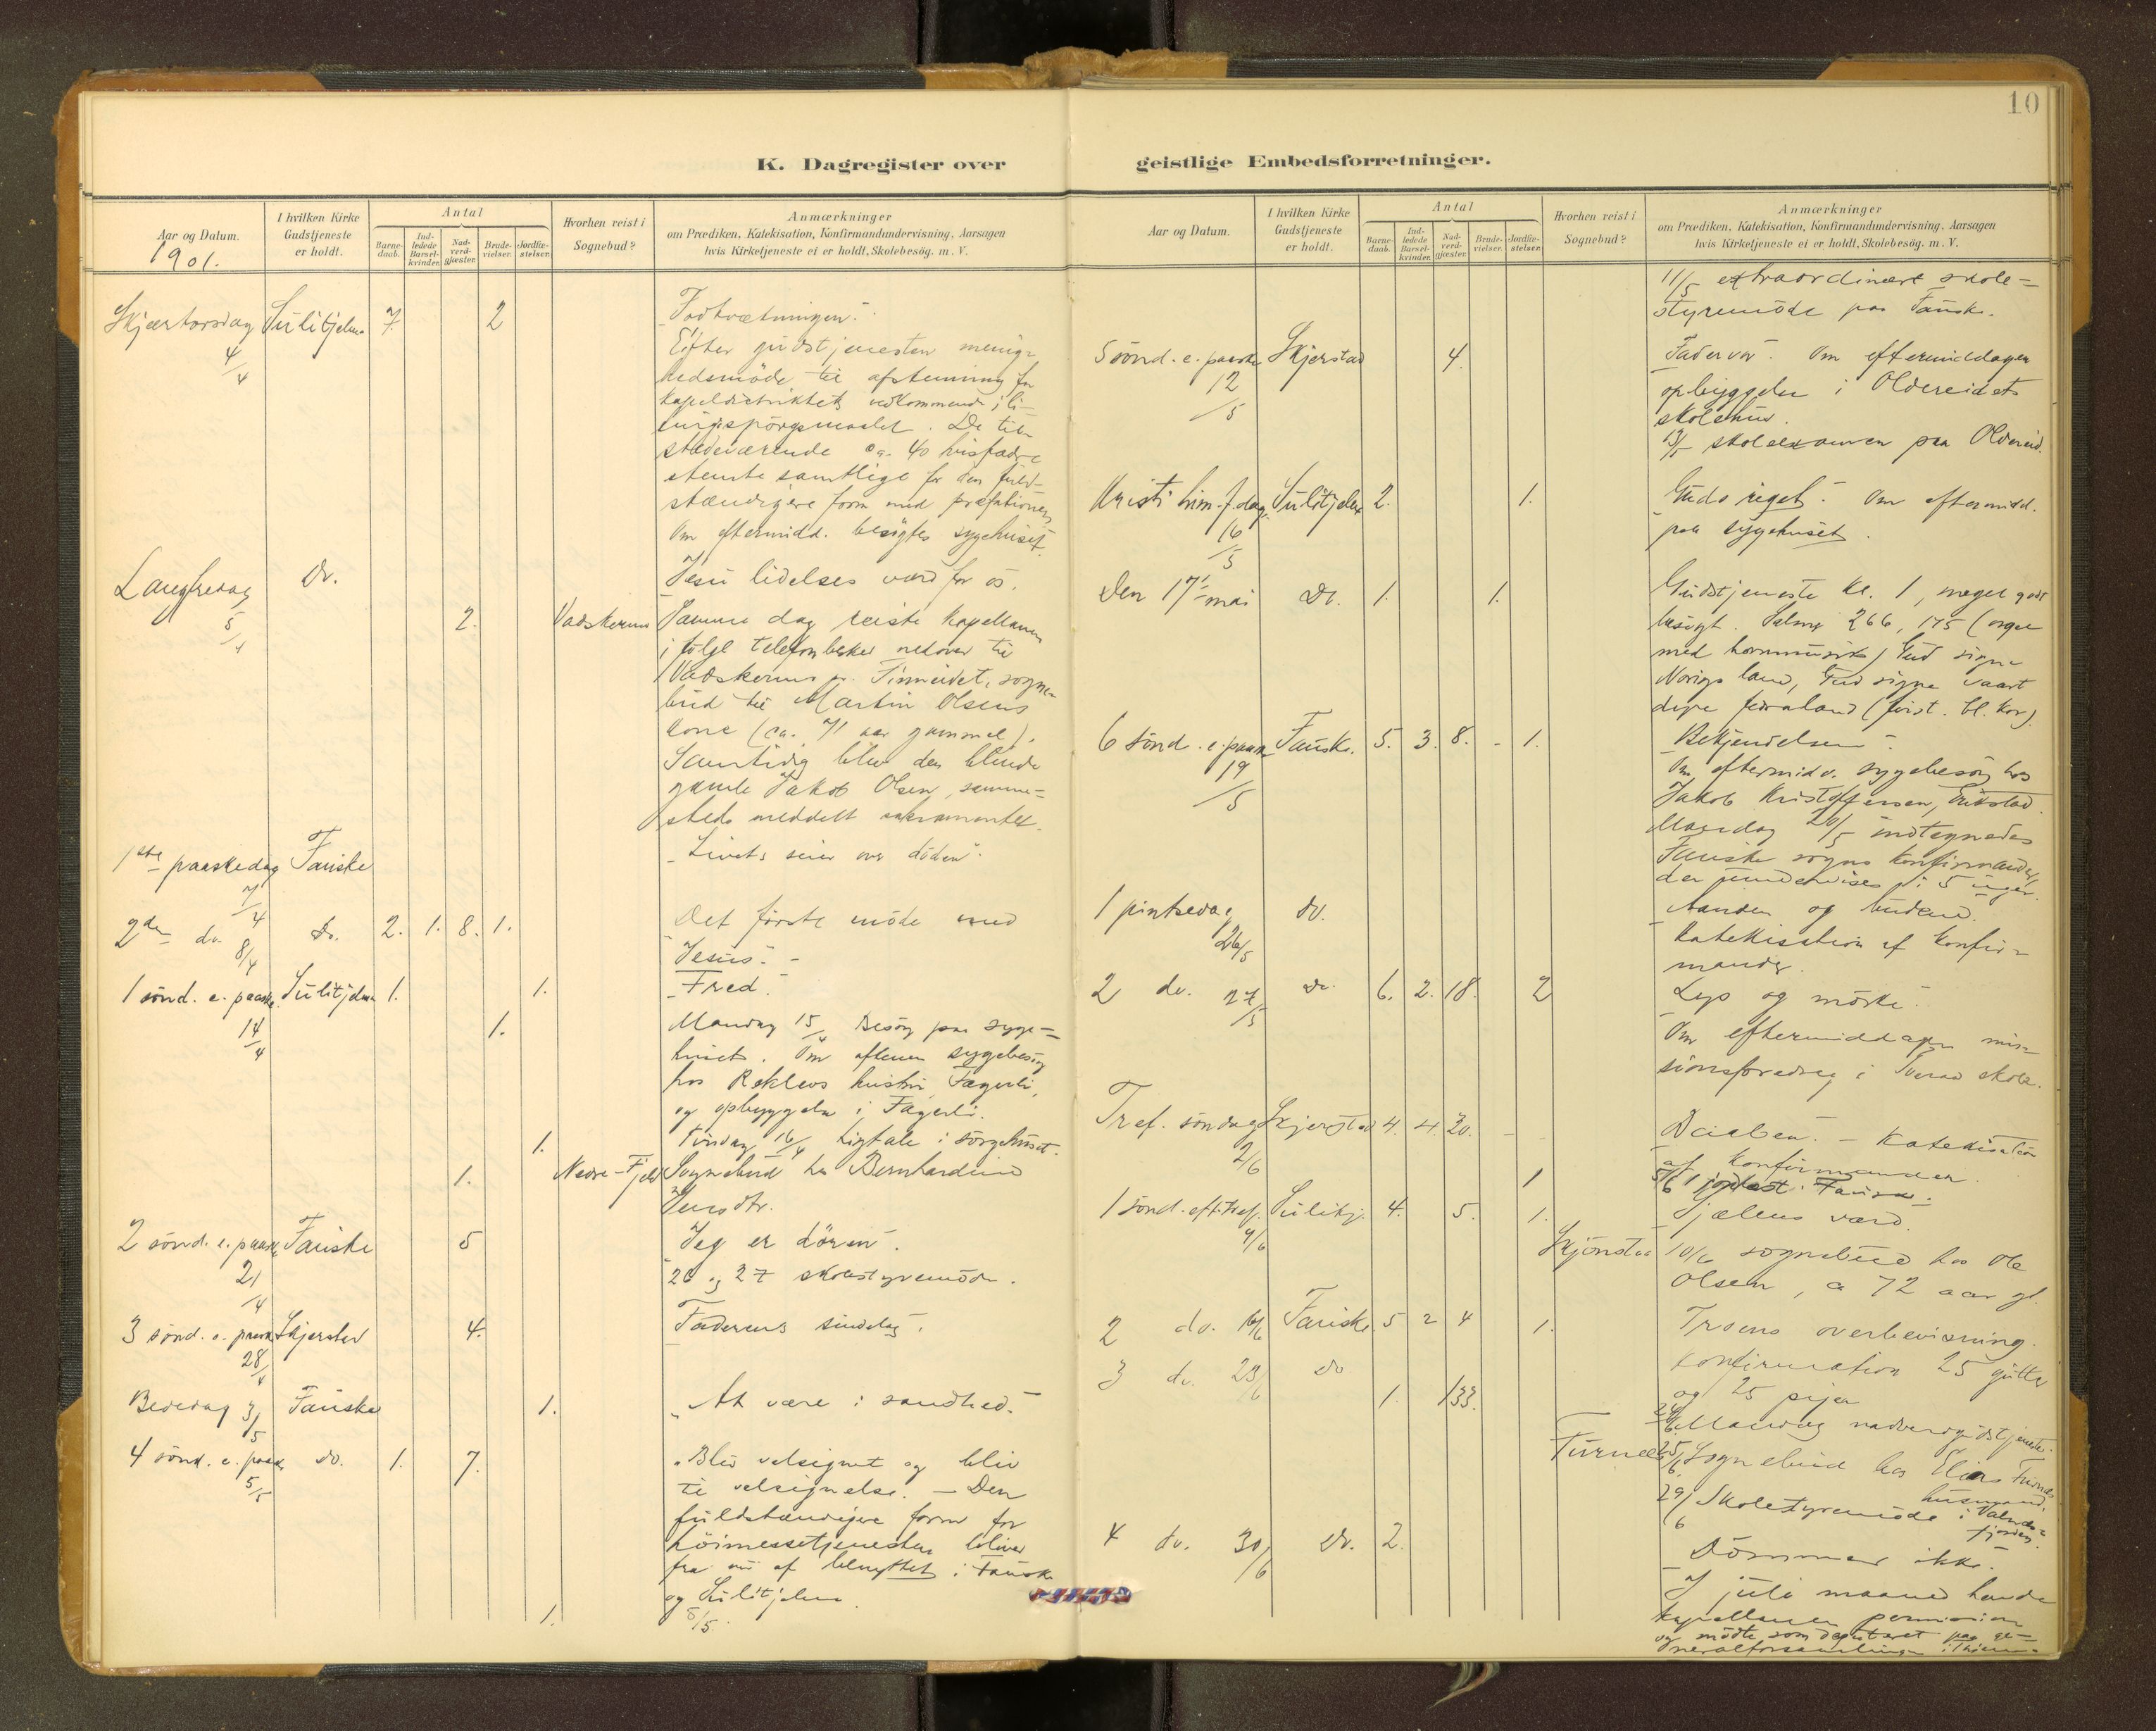 10
K. Dagregister over geistlige Embedsforretninger.
Aar og Datum.
1901.
I hvilken Kirke Gudstjeneste er holdt.
Antal
Barne-daab.
Ind-ledede Barsel-kvinder.
Nad-verd-gjæster.
Brude-vielser.
Jordfæ-stelser.
Hvorhen reist i Sognebud?
Anmærkninger
om Prædiken, Katekisation, Konfirmandundervisning, Aarsagen
hvis Kirketjeneste ei er holdt, Skolebesög. m. V.
Skjærtorsdag 4/4 Sulitjelma 7. 2
"Fodtvætningen".
Efter gudstjenesten menig-
hedsmöde til afstemning for
kapeldistriktets vedkommende i li-
turgispörgsmaalet. De til-
stedeværende ca. 40 husfædre
stemte samtlige for den fuld-
stændigere form med præfationen
Om eftermidd. besögtes sygehuset.
Langfredag 5/4 Do.
Jesu lidelses værd for os.
2. Vadskerm
Samme dag reiste kapellanen
i fölge telefonbesked nedover til
Finneidet, sogne-
bud til Martin Olsens
kone (ca. 71 aar gammel).
Samtidig blev den blinde
gamle Jakob Olsen, samme-
steds meddelt sakramentet.
1ste paaskedag 7/4 Fauske
"Livets seier over döden".
2den do. 8/4 do. 2. 1. 8. 1.
Det förste möde med
Jesus". -
1 sönd. e. paaske 14/4 Sulitjelma 1. 1.
"Fred".
1.
Mandag 15/4 Besög paa syge-
huset. Om aftenen sygebesög
hos hustru, Fagerli,
og opbyggelse i Fagerli.
1.
Tirsdag 16/4 Ligtale i sörgehuset.
1. Nedre-Fjeld
Sognebud hos Bernhardine
Jensdtr.
2 sönd. e. paaske 21/4 Fauske 5
"Jeg er dören".
26 og 27 skolestyremöde.
3 sönd. e. paaske 28/4 Skjerstad 4.
Faderens sindelag.
Bededag 3/5 Fauske 1.
"At være i sandhed."
4 sönd. e. paaske 5/5 do. 1. 7.
"Bliv velsignet og bliv
til velsignelse. - Den
fuldstændigere form for
höimessetjenesten bliver
fra nu af benyttet i Fauske
og Sulitjelma.
1. 8/5.
Aar og Datum.
I hvilken Kirke Gudstjeneste er holdt.
Antal
Barne-daab.
Ind-ledede Barsel-kvinder.
Nad-verd-gjæster.
Brude-vielser.
Jordfæ-stelser.
Hvorhen reist i Sognebud?
Anmærkninger
om Prædiken, Katekisation, Konfirmandundervisning, Aarsagen
hvis Kirketjeneste ei er holdt, Skolebesög. m. V.
11/5 extraordinært skole-
styremöde paa Fauske.
5 sönd. e. paaske 12/5 Skjerstad 4.
Fadervor". Om eftermiddagen
opbyggelse i Oldereidets
skolehus.
13/5 skoleexamen paa Oldereid.
Kristi him.f.dag 16/5 Sulitjelma 2. 1.
"Guds riget". Om eftermidd.
paa sygehuset.
Den 17de mai Do. 1. 1.
Gudstjeneste kl. 1, meget godt
besögt. Salmer 266, 175 (orgel
med hornmusik) Gud signe
Norigs land, Gud signe vaart
dyre fedraland (först. bl. kor).
6 sönd. e. paaske 19/5 Fauske. 5. 3. 8. - 1.
"Bekjendelsen".
Om eftermidd. sygebesög hos
Jakob Kristoffersen, Erikstad.
Mandag 20/5 indtegnedes
Fauske sogns konfirmander,
der undervises i 5 uger.
1 pintsedag 26/5 do.
"Aanden og
Katekisation af konfir-
mander.
2 do. 27/5 do. 6. 2. 18. 2
Lys og mörke".
Om eftermiddagen mis-
sionsforedrag i skole.
Tref. söndag 2/6 Skjerstad 4. 4. 20. - -
Daaben". - Katekisation
af konfirmander.
1
5/6 1 jordfæst. Fauske.
1 sönd. eft. tref. 9/6 Sulitj. 4. 5. 1.
Sjælens værd.
Skjönstaa
10/6 sognebud hos Ole
Olsen, a 72 aar gl.
2 do. 16/6 Fauske 5 2 4 1.
Troens overbevisning.
3 do. 23/6 do
Konfirmation 25 gutter
og 25 piger
1. 133.
24/6 Mandag nadverdgudstjeneste.
Furnes
25/6 Sognebud hos Elias Furnes
husmand.
29/6 Skolestyremöde i Valnes-
fjorden.
4 do. 30/6 do. 2.
"Dömmer ikke.
I juli maaned havde
kapellanen permission
og mödte som deputeret paa ge-
neralforsamlingen i